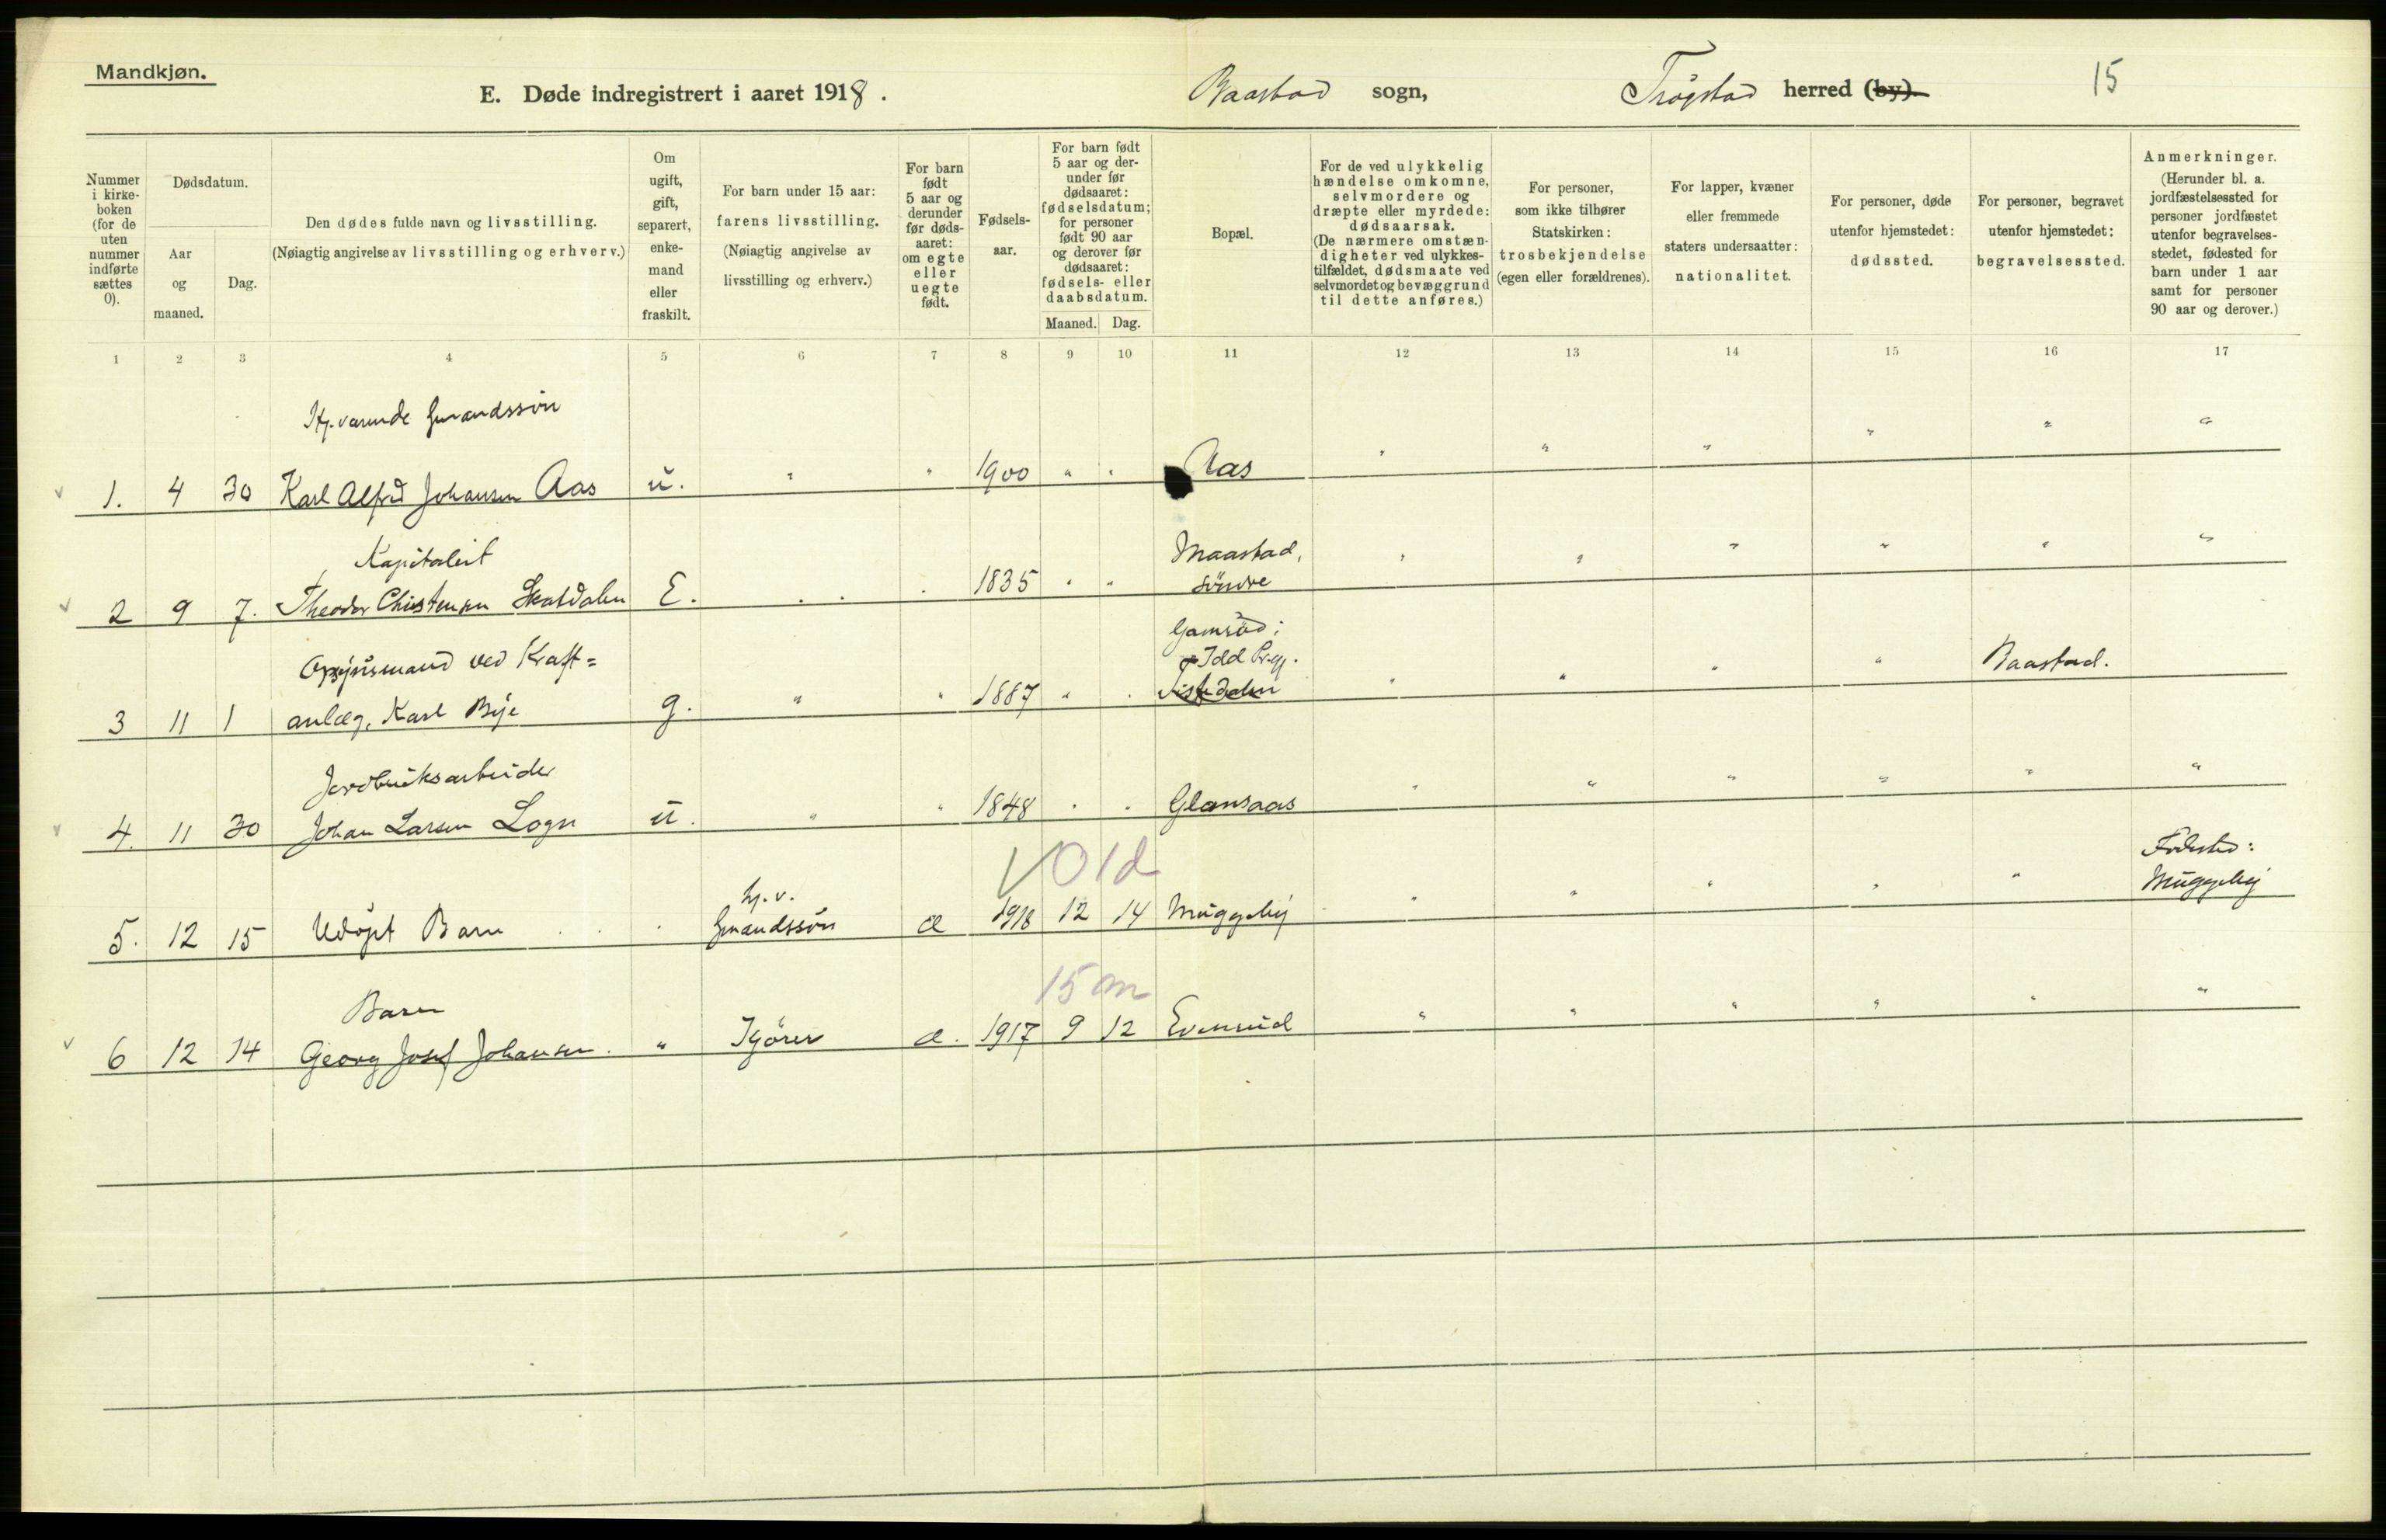 Mandkjøn.
E. Døde indregistrert i aaret 1918.
Baastad sogn,
Trøgstad herred (by).
15
Nummer i kirkeboken (for de uten nummer indførte sættes 0).
Dødsdatum.
Aar og maaned.
Dag.
Den dødes fulde navn og livsstilling.
(Nøiagtig angivelse av livsstilling og erhverv.)
Om ugift, gift, separert, enkemand eller fraskilt.
For barn under 15 aar:
farens livsstilling.
(Nøiagtig angivelse av livsstilling og erhverv.)
For barn født 5 aar og derunder før dødsaaret: om egte eller uegte født.
Fødselsaar.
For barn født 5 aar og derunder før dødsaaret: fødselsdatum; for personer født 90 aar og derover før dødsaaret: fødsels- eller daabsdatum.
Maaned. Dag.
Bopæl.
For de ved ulykkelig hændelse omkomne, selvmordere og dræpte eller myrdede: dødsaarsak.
(De nærmere omstændigheter ved ulykkestilfældet, dødsmaate ved selvmordet og bevæggrund til dette anføres.)
For personer, som ikke tilhører Statskirken: trosbekjendelse (egen eller forældrenes).
For lapper, kvæner eller fremmede staters undersaatter: nationalitet.
For personer, døde utenfor hjemstedet: dødssted.
For personer, begravet utenfor hjemstedet: begravelsessted.
Anmerkninger.
(Herunder bl. a. jordfæstelsessted for personer jordfæstet utenfor begravelsesstedet, fødested for barn under 1 aar samt for personer 90 aar og derover.)
1 2 3 4 5 6 7 8 9 10 11 12 13 14 15 16 17
Hj. varende Gmandssøn
1. 4 30 Karl Alfred Johansen Aas u. " " 1900 " " Aas " " " " " "
Kapitalist Maastad,
2 9 7. Theodor Christensen Skatdalen E. 1835 " " søndre " " " " " "
Gamrød;
Opsynsmand ved Kraft= Idd Pr.gj. Baastad.
3 11 1 anlæg, Karl Bye g. " " 1887 " Tistedalen " " " "
Jordbruksarbeider
4. 11 30 Johan Larsen u. " " 1848 " " Glansaas " " " " " "
V 01d
Fødested:
hj. v. Muggeby
5. 12 15 Udøpt Barn Gmandssøn æ 1918 12 14 Muggeby " " " " "
15 m
Barn
6 12 14 Georg Josef Johansen. " Kjører æ. 1917 9 12 Evensrud " " " " " "